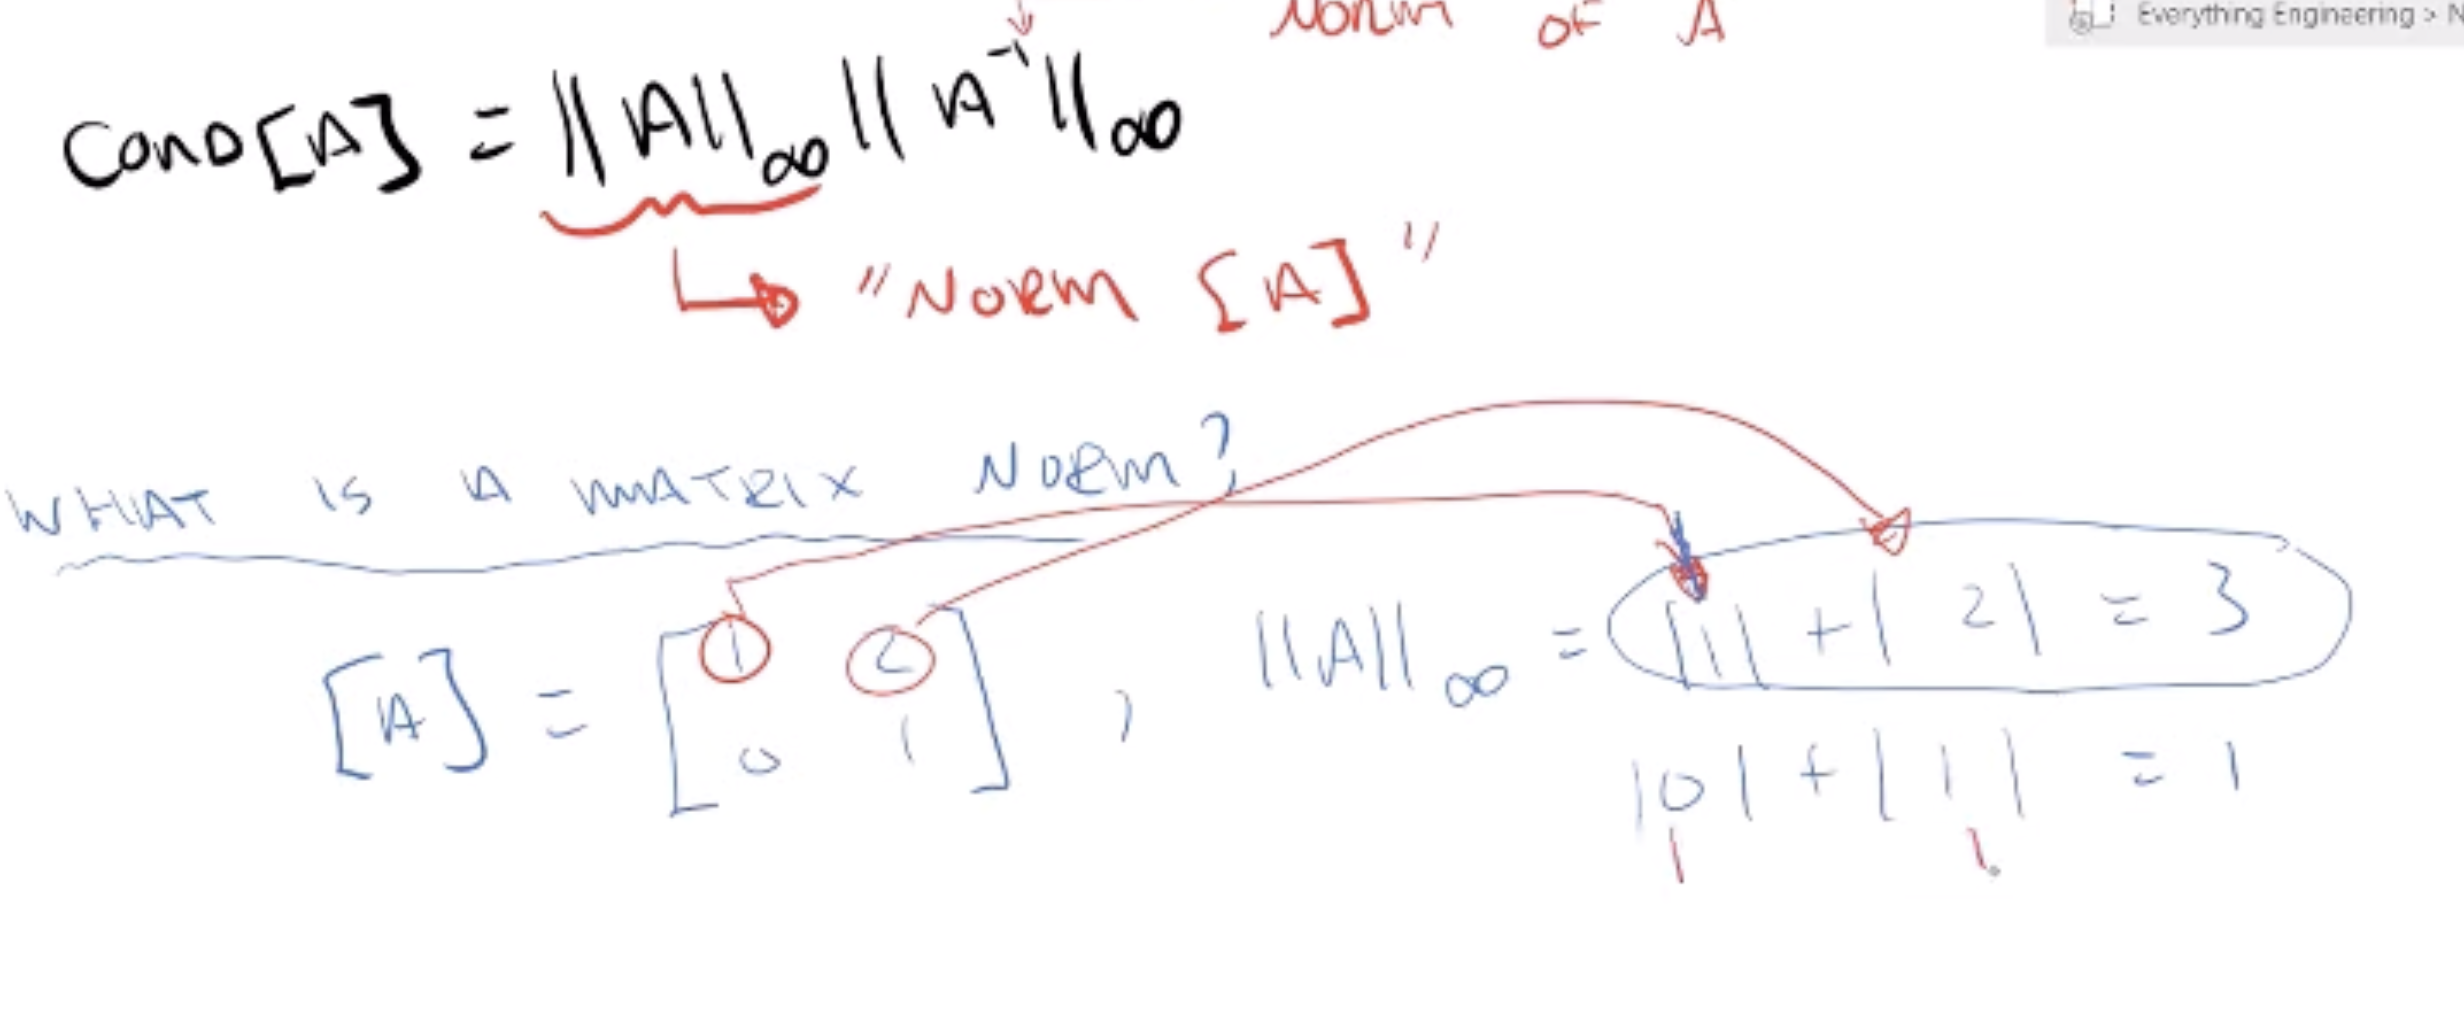 Norm of A
Everything Engineering > N
Cond[A] = ||A||∞ ||A⁻¹||∞
"Norm [A]"
WHAT IS A MATRIX NORM?
[A] = [1 2
0 1] , ||A||∞ = |1| + |2| = 3
|0| + |1| = 1